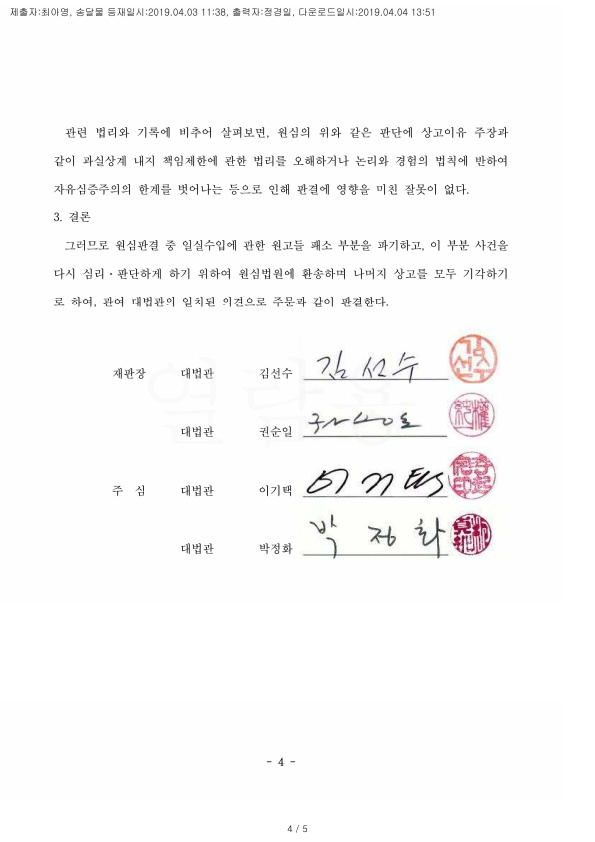 제출자:최아영, 송달물 등재일시:2019.04.03 11:38, 출력자:정경일, 다운로드일시:2019.04.04 13:51
관련 법리와 기록에 비추어 살펴보면, 원심의 위와 같은 판단에 상고이유 주장과
같이 과실상계 내지 책임제한에 관한 법리를 오해하거나 논리와 경험의 법칙에 반하여
자유심증주의의 한계를 벗어나는 등으로 인해 판결에 영향을 미친 잘못이 없다.
3. 결론
그러므로 원심판결 중 일실수입에 관한 원고들 패소 부분을 파기하고, 이 부분 사건을
다시 심리・판단하게 하기 위하여 원심법원에 환송하며 나머지 상고를 모두 기각하기
로 하여, 관여 대법관의 일치된 의견으로 주문과 같이 판결한다.
열람용
재판장 대법관 김선수 김선수
대법관 권순일
주 심 대법관 이기택 이기택
대법관 박정화 박정화
- 4 -
4 / 5